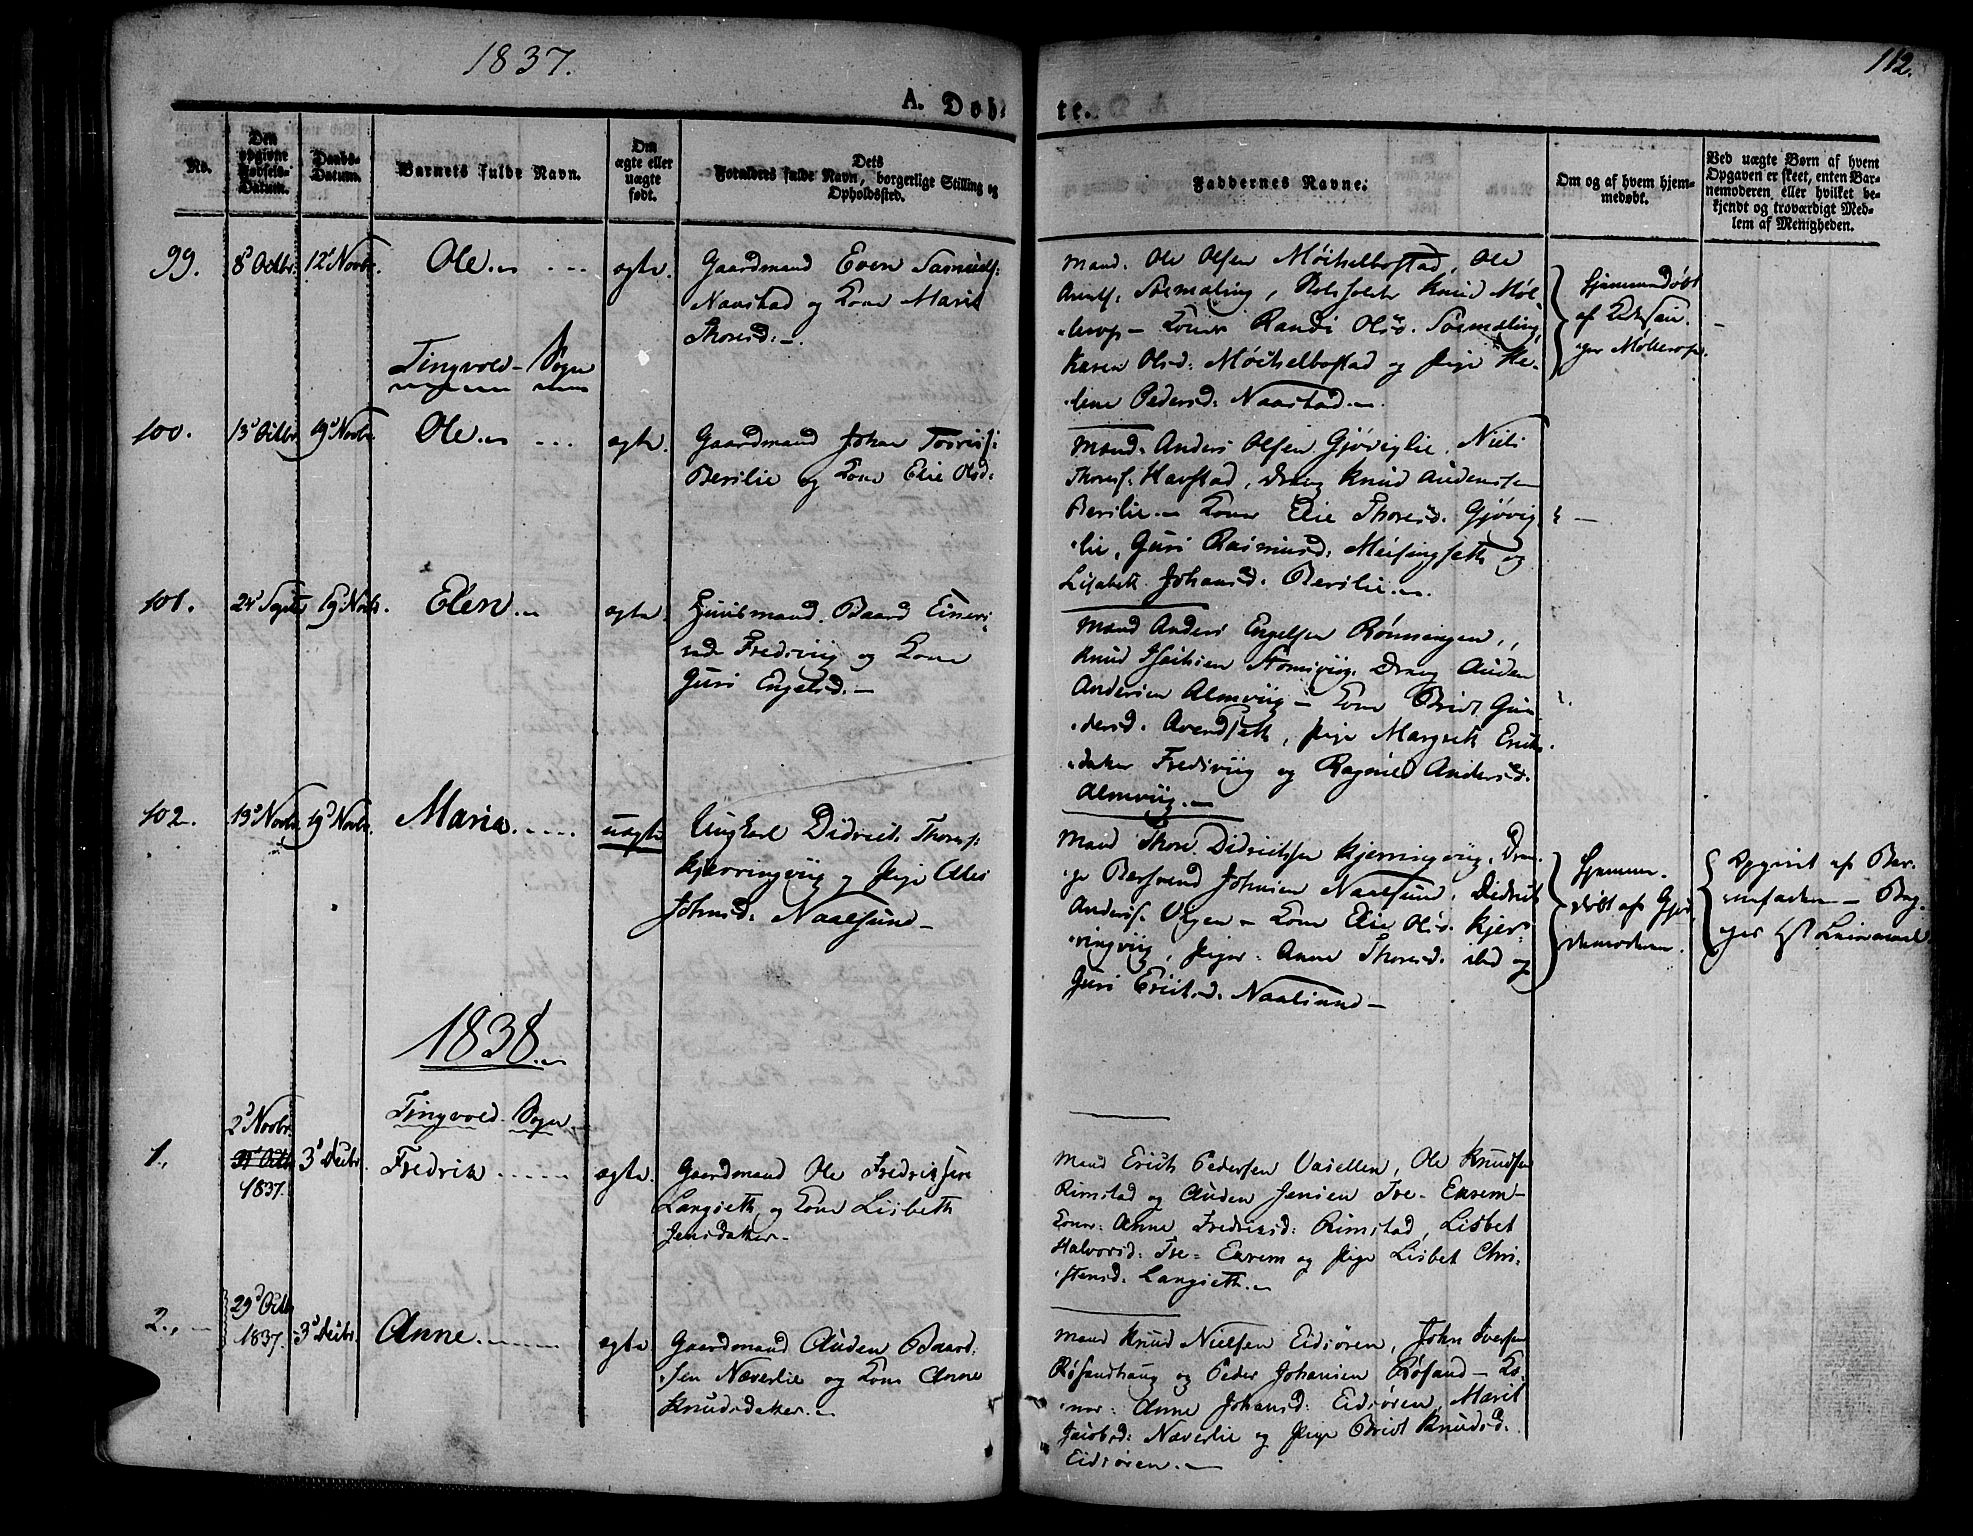 1837.
112.
A. Døbte.
No.
Den opgivne Fødsels-Datum.
Daabs-Datum.
Barnets fulde Navn.
Om ægte eller uægte født.
Dets Forældres fulde Navn, borgerlige Stilling og Opholdssted.
Faddernes Navne.
Om og af hvem hjemmedøbt.
Ved uægte Børn af hvem Opgaven er skeet, enten Barnemoderen eller hvilket bekjendt og troværdigt Medlem af Menigheden.
99. 8d Octbr. 12t Novbr. Ole ... ægte. Gaardmand Even
Naastad og Kone Marit
Thoresd: –
Mand. Ole Olsen Møichelbostad, Ole
Knud Møl-
lerop – Koner Randi Olsd.
Karen Olsd: Møichelbostad og Pige He-
lene Pedersd: Naastad. –
Hjemmedøbt
af
Møllerop.
Tingvold – Sogn
100. 13d Octbr 19d Novbr. Ole ... ægte. Gaardmand Johan
Berilie og Kone Elie Olsd:
Mand: Anders Olsen Gjøviglie, Niels
Thores: Havstad, Dreng Knud Audensen
Berilie. – Koner Elie Thoresd. Gjøvig-
lie, Guri Rasmusd: Meisingseth og
Lisabeth Johansd. Berilie. –
101. 24d Septbr 19d Novbr. Elen. – ægte. Huusmand Baard
Fredsviig og Kone
Guri Engelsd. –
Mand Anders Engelsen Rønningen,
Knud Dreng Auden
Andersen Almviig – Kone Brit Gun-
dersd. Avendseth, Pige Margreth Erichs-
datter Fredsviig og Ragnild Andersd.
Almviig. –
102. 13d Novbr. 19d Novbr. Maria ... uægte Ungkarl Didrich Thores:
Kjerringviig og Pige
Johnsd: Naalsund –
Mand Thore Didrichsen Kjerringviig, Dren-
ge Bersvend Johnsen Naalsund, Didrich
Anders. Vaagen – Kone Elie Olsd. Kjer-
ringviig, Piger: Anne Thoresd. ibd og
Guri Erichsd. Naalsund –
Hjemme-
døbt af Gjor-
demoderen.
Opgivet af Bar-
nefaderen –
1838. –
Tingvold Sogn
1. 2d Novbr. 1837. 3d Decbr. Fredrik ... ægte. Gaardmand Ole Fredriksen
Langseth, og Kone Lisbeth
Jensdatter –
Mand Erich Pedersen Vasellen, Ole Knudsen
Rimstad og Auden Jensen Tre-Eikrem –
Koner: Anne Fredriksd: Rimstad, Lisbet
Halvorsd: Tre-Eikrem og Pige Lisbet Chri-
stensd: Langseth. –
2., – 29d Octbr 1837. 3d Decbr. Anne ... ægte Gaardmand Auden Baard-
sen Næverlie og Kone Anne
Knudsdatter. –
Mand Knud Nielsen Eidsøren, John Iversen
Røsandhaug og Peder Johansen Røsand – Ko-
ner: Anne Johansd: Eidsøren, Marit
Jacobsd: Næverlie og Pige Brit Knudsd.
Eidsøren. –